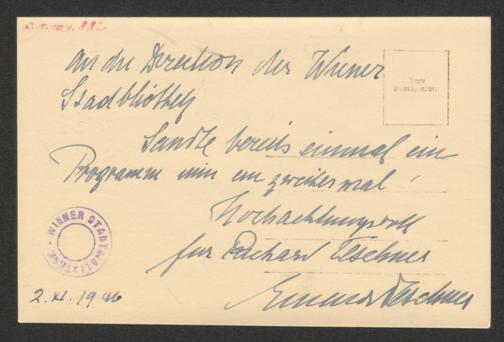 An die Direction der Wiener
Stadtbibliothek
Sandte bereits einmal ein
Programm nun ein zweites mal!
Hochachtungsvoll
für Richard Teschner
Emma Teschner
WIENER STADTBIBLIOTHEK
2. XI. 1946